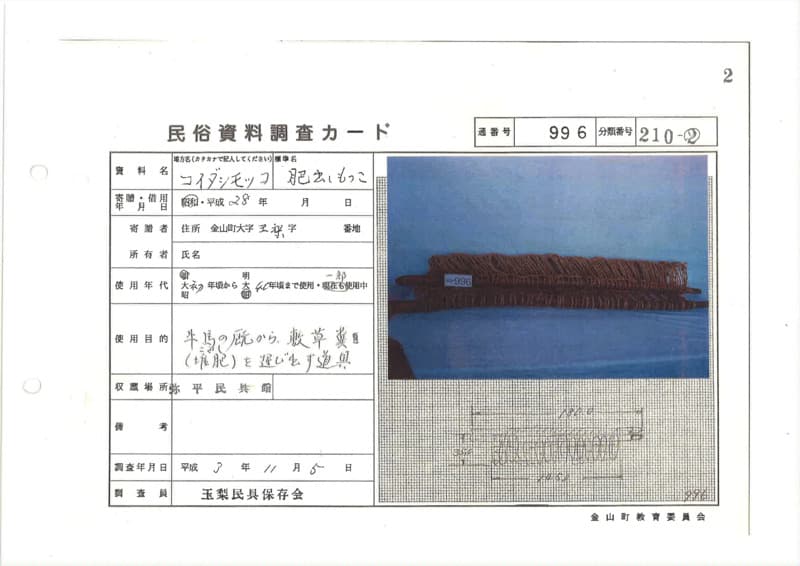 2
民俗資料調査カード
通番号 996 分類番号 210-②
資料名 地方名(カタカナで記入してください) 標準名
コイダシモッコ 肥出しもっこ
寄贈・借用年月日 昭和・平成 28 年 月 日
寄贈者 住所 金山町大字 玉梨 字 番地
所有者 氏名
使用年代 明大昭 初 年頃から 明大昭 40 年頃まで使用・現在も使用中 一部
使用目的 牛馬の厩から敷草糞
(堆肥)を運び出す道具
収蔵場所 弥平民具館
備考
調査年月日 平成 3 年 11 月 5 日
調査員 玉梨民具保存会
996
180.0
996
金山町教育委員会